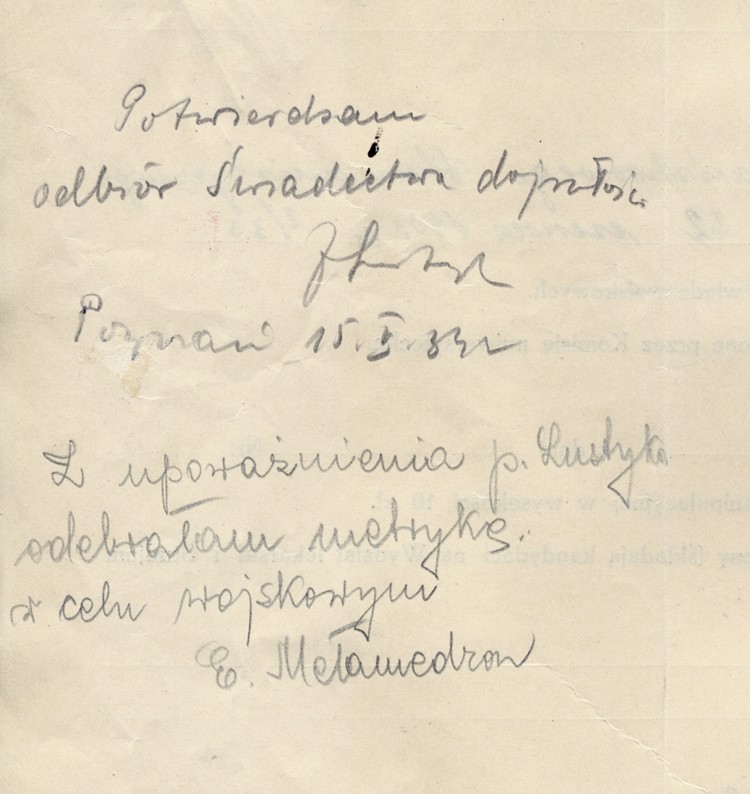 Potwierdzam
odbiór Świadectwa dojrzałości
Poznań 15.X.34r
Z upoważnienia p. Lustyka
odebrałam metrykę.
w celu wojskowym
E. Mełamedzon